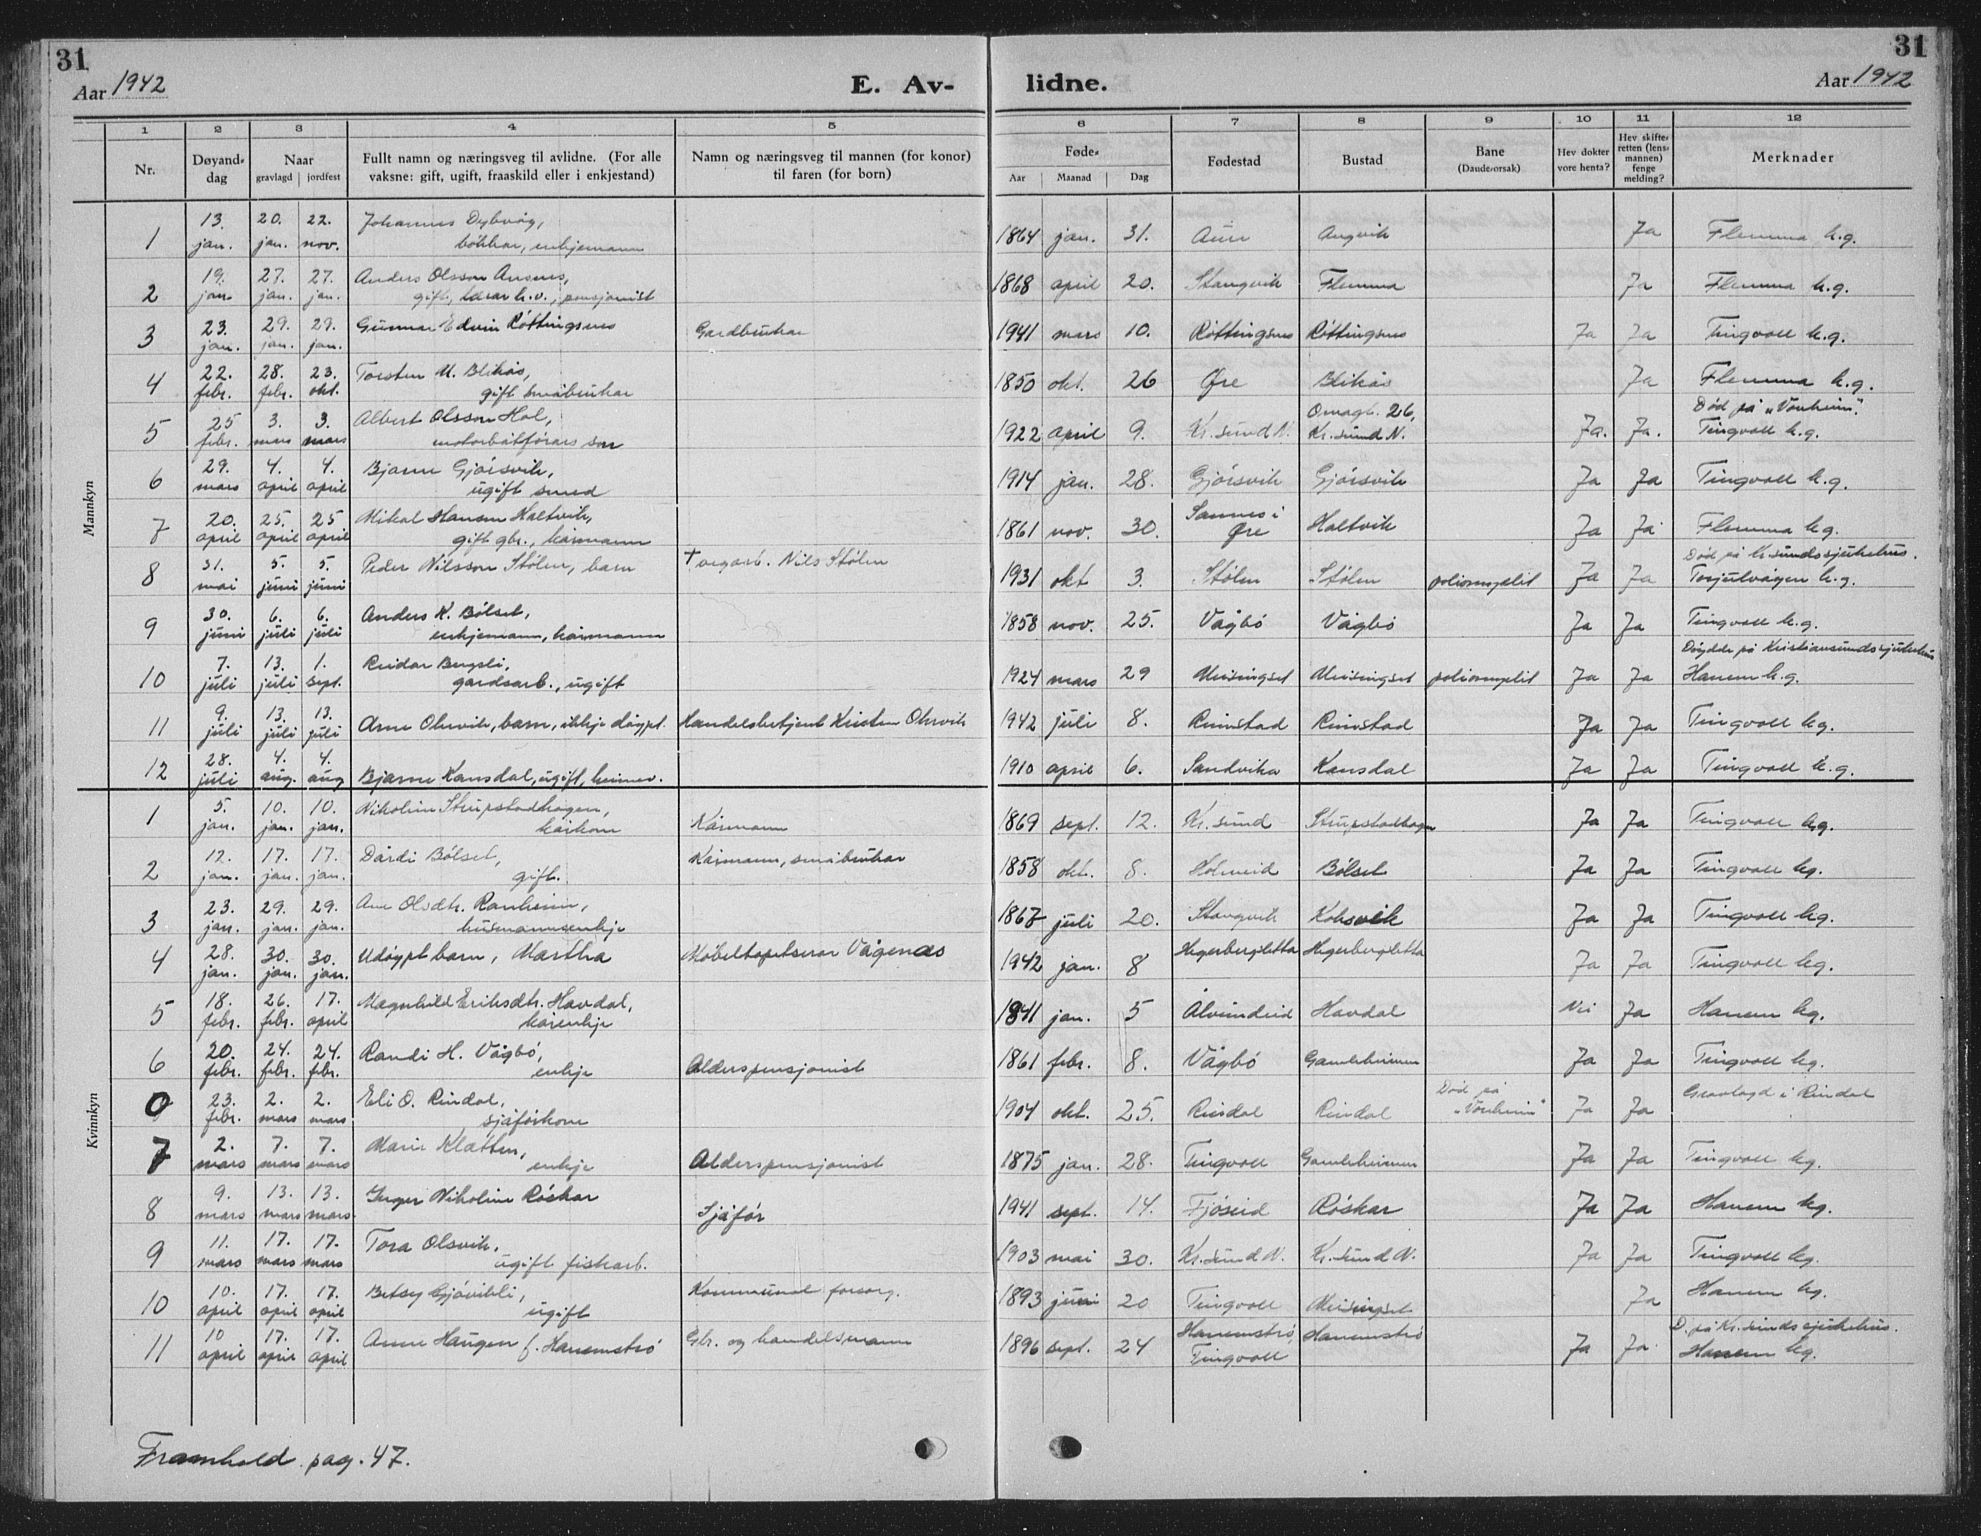 31
31
Aar 1942
E. Av-
lidne.
Aar 1942
1 2 3 4 5 6 7 8 9 10 11 12
Nr.
Døyand-
dag
Naar
gravlagd jordfest
Fullt namn og næringsveg til avlidne. (For alle
vaksne: gift, ugift, fraaskild eller i enkjestand)
Namn og næringsveg til mannen (for konor)
til faren (for born)
Føde-
Aar Maanad Dag
Fødestad
Bustad
Bane
(Daudeorsak)
Hev dokter
vore henta?
Hev skifte-
retten (lens-
mannen)
fenge
melding?
Merknader
Mannkyn
1 13. jan. 20. jan. 22. nov. Johannes Dybvåg, enkjemann 1864 jan. 31. Aure Angvik Ja Flemma k.g.
2 19. jan. 27. jan. 27. jan. Anders Olsson Aasnes, gift, lærar k.v., pensjonist 1868 april 20. Stangvik Flemma Ja Flemma k.g.
3 23. jan. 29. jan. 29. jan. Gunnar Edvin Røttingsnes Gardbrukar 1941 mars 10. Røttingsnes Røttingsnes Ja Ja Tingvoll k.g.
4 22. febr. 28. febr. 23. okt. Torsten M. Blikås, gift småbrukar 1850 okt. 26 Øre Blikås Ja Flemma k.g.
5 25 febr. 3. mars 3. mars Albert Olsson Hol, motorbåtførars son 1922 april 9. Kr.sund N. Omagt. 26, Kr.sund N. Ja. Ja. Død på "Vonheim". Tingvoll k.g.
6 29. mars 4. april 4. april Bjarne Gjørsvik, ugift smed 1914 jan. 28. Gjørsvik Gjørsvik Ja Ja Tingvoll k.g.
7 20. april 25. april 25 april Mikal Hansen Holtvik, gift gbr., kårmann 1861 nov. 30. Sannes i Øre Holtvik Ja Ja Flemma k.g.
8 31. mai 5. juni 5. juni Peder Nilsson Stølen, barn + vegarb. Nils Stølen 1931 okt 3. Stølen Stølen poliomyelit Ja Ja Død på Kr.sunds sjukehus. Torjulvågen k.g.
9 30. juni 6. juli 6. juli Anders K. Bølset, enkjemann, kårmann 1858 nov. 25. Vågbø Vågbø Ja Ja Tingvoll k.g.
10 7. juli 13. juli 1. sept. Reidar Bergsli, gardsarb., ugift 1924 mars 29 Meisingset Meisingset poliomyelit Ja Ja Døydde på Kristiansunds sjukehus Hanem k.g.
11 9. juli 13. juli 13. juli Arne Olsvik, barn, ikkje døypt. Handelsbetjent Kristen Olsvik 1942 juli 8. Reinstad Reinstad Ja Ja Tingvoll k.g.
12 28. juli 4. aug. 4. aug Bjarne Kansdal, ugift, heimev. 1910 april 6. Sandvika Kansdal Ja Ja Tingvoll k.g.
Kvinnkyn
1 5. jan. 10. jan. 10. jan. Nikoline Skrupstadhagen, kårkone Kårmann 1869 sept. 12. Kr. sund Skrupstadhagen Ja Ja Tingvoll kg.
2 12. jan. 17. jan. 17. jan. Dårdi Bølset, gift. Kårmann, småbrukar 1858 okt. 8. Holmeid Bølset Ja Ja Tingvoll kg.
3 23. jan. 29. jan. 29. jan. Ane Olsdtr. Ranheim, husmannsenkje 1867 juli 20. Stangvik Kolsvik Ja Ja Tingvoll kg.
4 28. jan. 30. jan. 30. jan. Udøypt barn, Martha Møbeltapetserar Vågenæs 1942 jan. 8 Hegerbergsletta Hegerbergsletta Ja Ja Tingvoll kg.
5 18. febr. 26. febr. 17. april Magnhild Eriksdtr. Havdal, kårenkje 1841 jan. 5 Ålvundeid Havdal Nei Ja Hanem kg.
6 20. febr. 24. febr. 24. febr. Randi H. Vågbø, enkje Alderspensjonist 1861 febr. 8. Vågbø Gamleheimen Ja Ja Tingvoll kg.
0 23. febr. 2. mars 2. mars Eli O. Rindal, sjåførkone 1904 okt. 25. Rindal Rindal Død på "Vonheim" Ja Ja Gravlagd i Rindal
7 2. mars 7. mars 7. mars Marie Klåtten, enkje Alderspensjonist 1875 jan. 28. Tingvoll Gamleheimen Ja Ja Tingvoll kg.
8 9. mars 13. mars 13. mars Inger Nikoline Røskar Sjåfør 1941 sept. 14. Fjøseid Røskar Ja Ja Hanem kg.
9 11. mars 17. mars 17. mars Tora Olsvik, ugift fiskarb. 1903 mai 30. Kr.sund N. Kr.sund N. Ja Ja Tingvoll kg.
10 10. april 17. april 17. april Betsy Gjøvikli, ugift Kommunal forsorg. 1893 juni 20 Tingvoll Meisingset Ja Hanem kg.
11 10 april 17. april 17. april Anne Haugen f. Hanemstrø Gbr. og handelsmann 1896 sept. 24 Hanemstrø Tingvoll Hanemstrø Ja Ja. D. på Kr.sunds sjukehus. Hanem kg.
Framhald pag. 47.